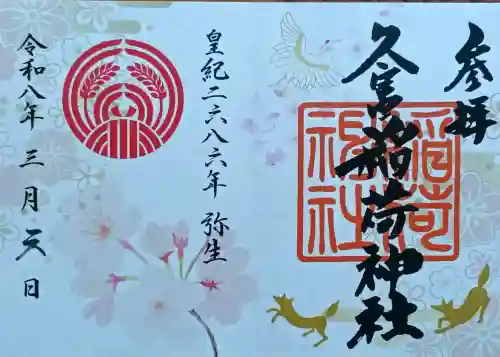 参拝
久富稲荷神社
稲荷神社
皇紀二六八六年 弥生
令和八年三月日